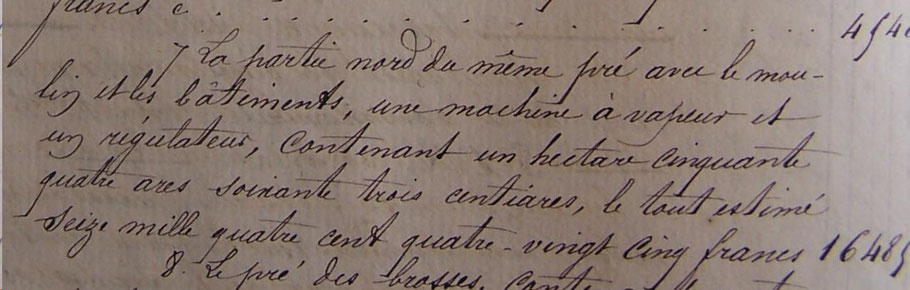 francs c . . . . . . . . . . . . 454
7 La partie nord du même pré avec le mou-
lin et les bâtiments, une machine à vapeur et
un régulateur, contenant un hectare cinquante
quatre ares soixante trois centiares, le tout estimé
seize mille quatre cent quatre-vingt cinq francs 16485
8. Le pré des brosses,